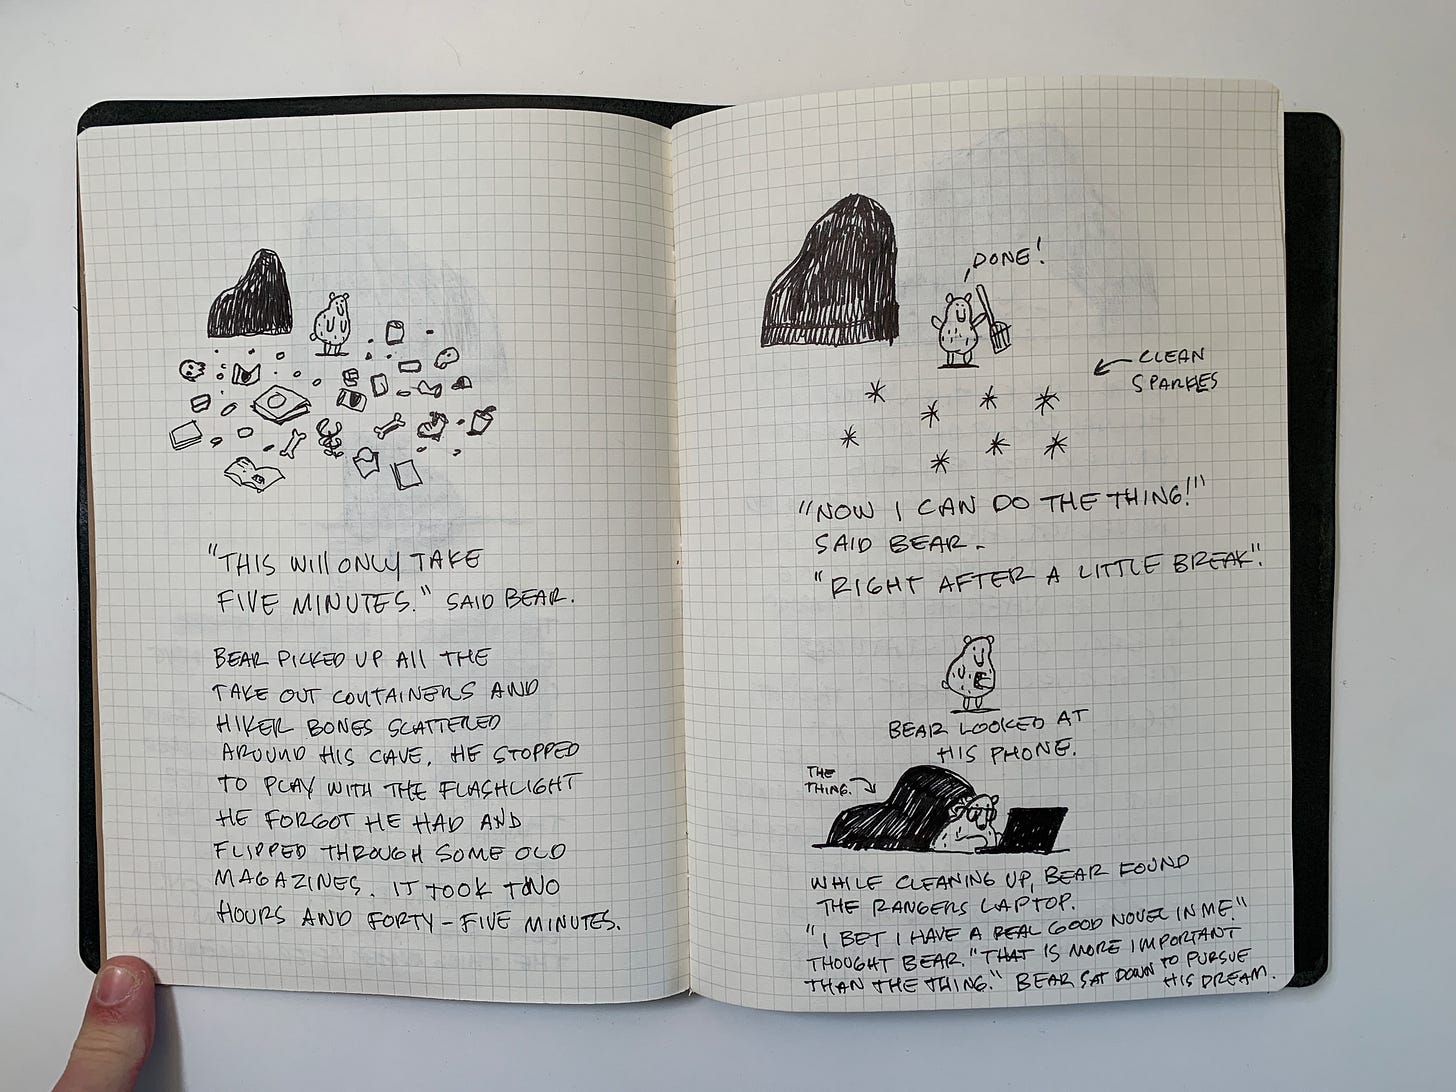 "THIS WILL ONLY TAKE
FIVE MINUTES." SAID BEAR.
BEAR PICKED UP ALL THE
TAKE OUT CONTAINERS AND
HIKER BONES SCATTERED
AROUND HIS CAVE. HE STOPPED
TO PLAY WITH THE FLASHLIGHT
HE FORGOT HE HAD AND
FLIPPED THROUGH SOME OLD
MAGAZINES. IT TOOK TWO
HOURS AND FORTY-FIVE MINUTES.
DONE!
CLEAN
SPARKLES
"NOW I CAN DO THE THING!"
SAID BEAR.
"RIGHT AFTER A LITTLE BREAK".
BEAR LOOKED AT
HIS PHONE.
THE
THING.
WHILE CLEANING UP, BEAR FOUND
THE RANGERS LAPTOP.
"I BET I HAVE A REAL GOOD NOVEL IN ME."
THOUGHT BEAR. "THAT IS MORE IMPORTANT
THAN THE THING." BEAR SAT DOWN TO PURSUE
HIS DREAM.